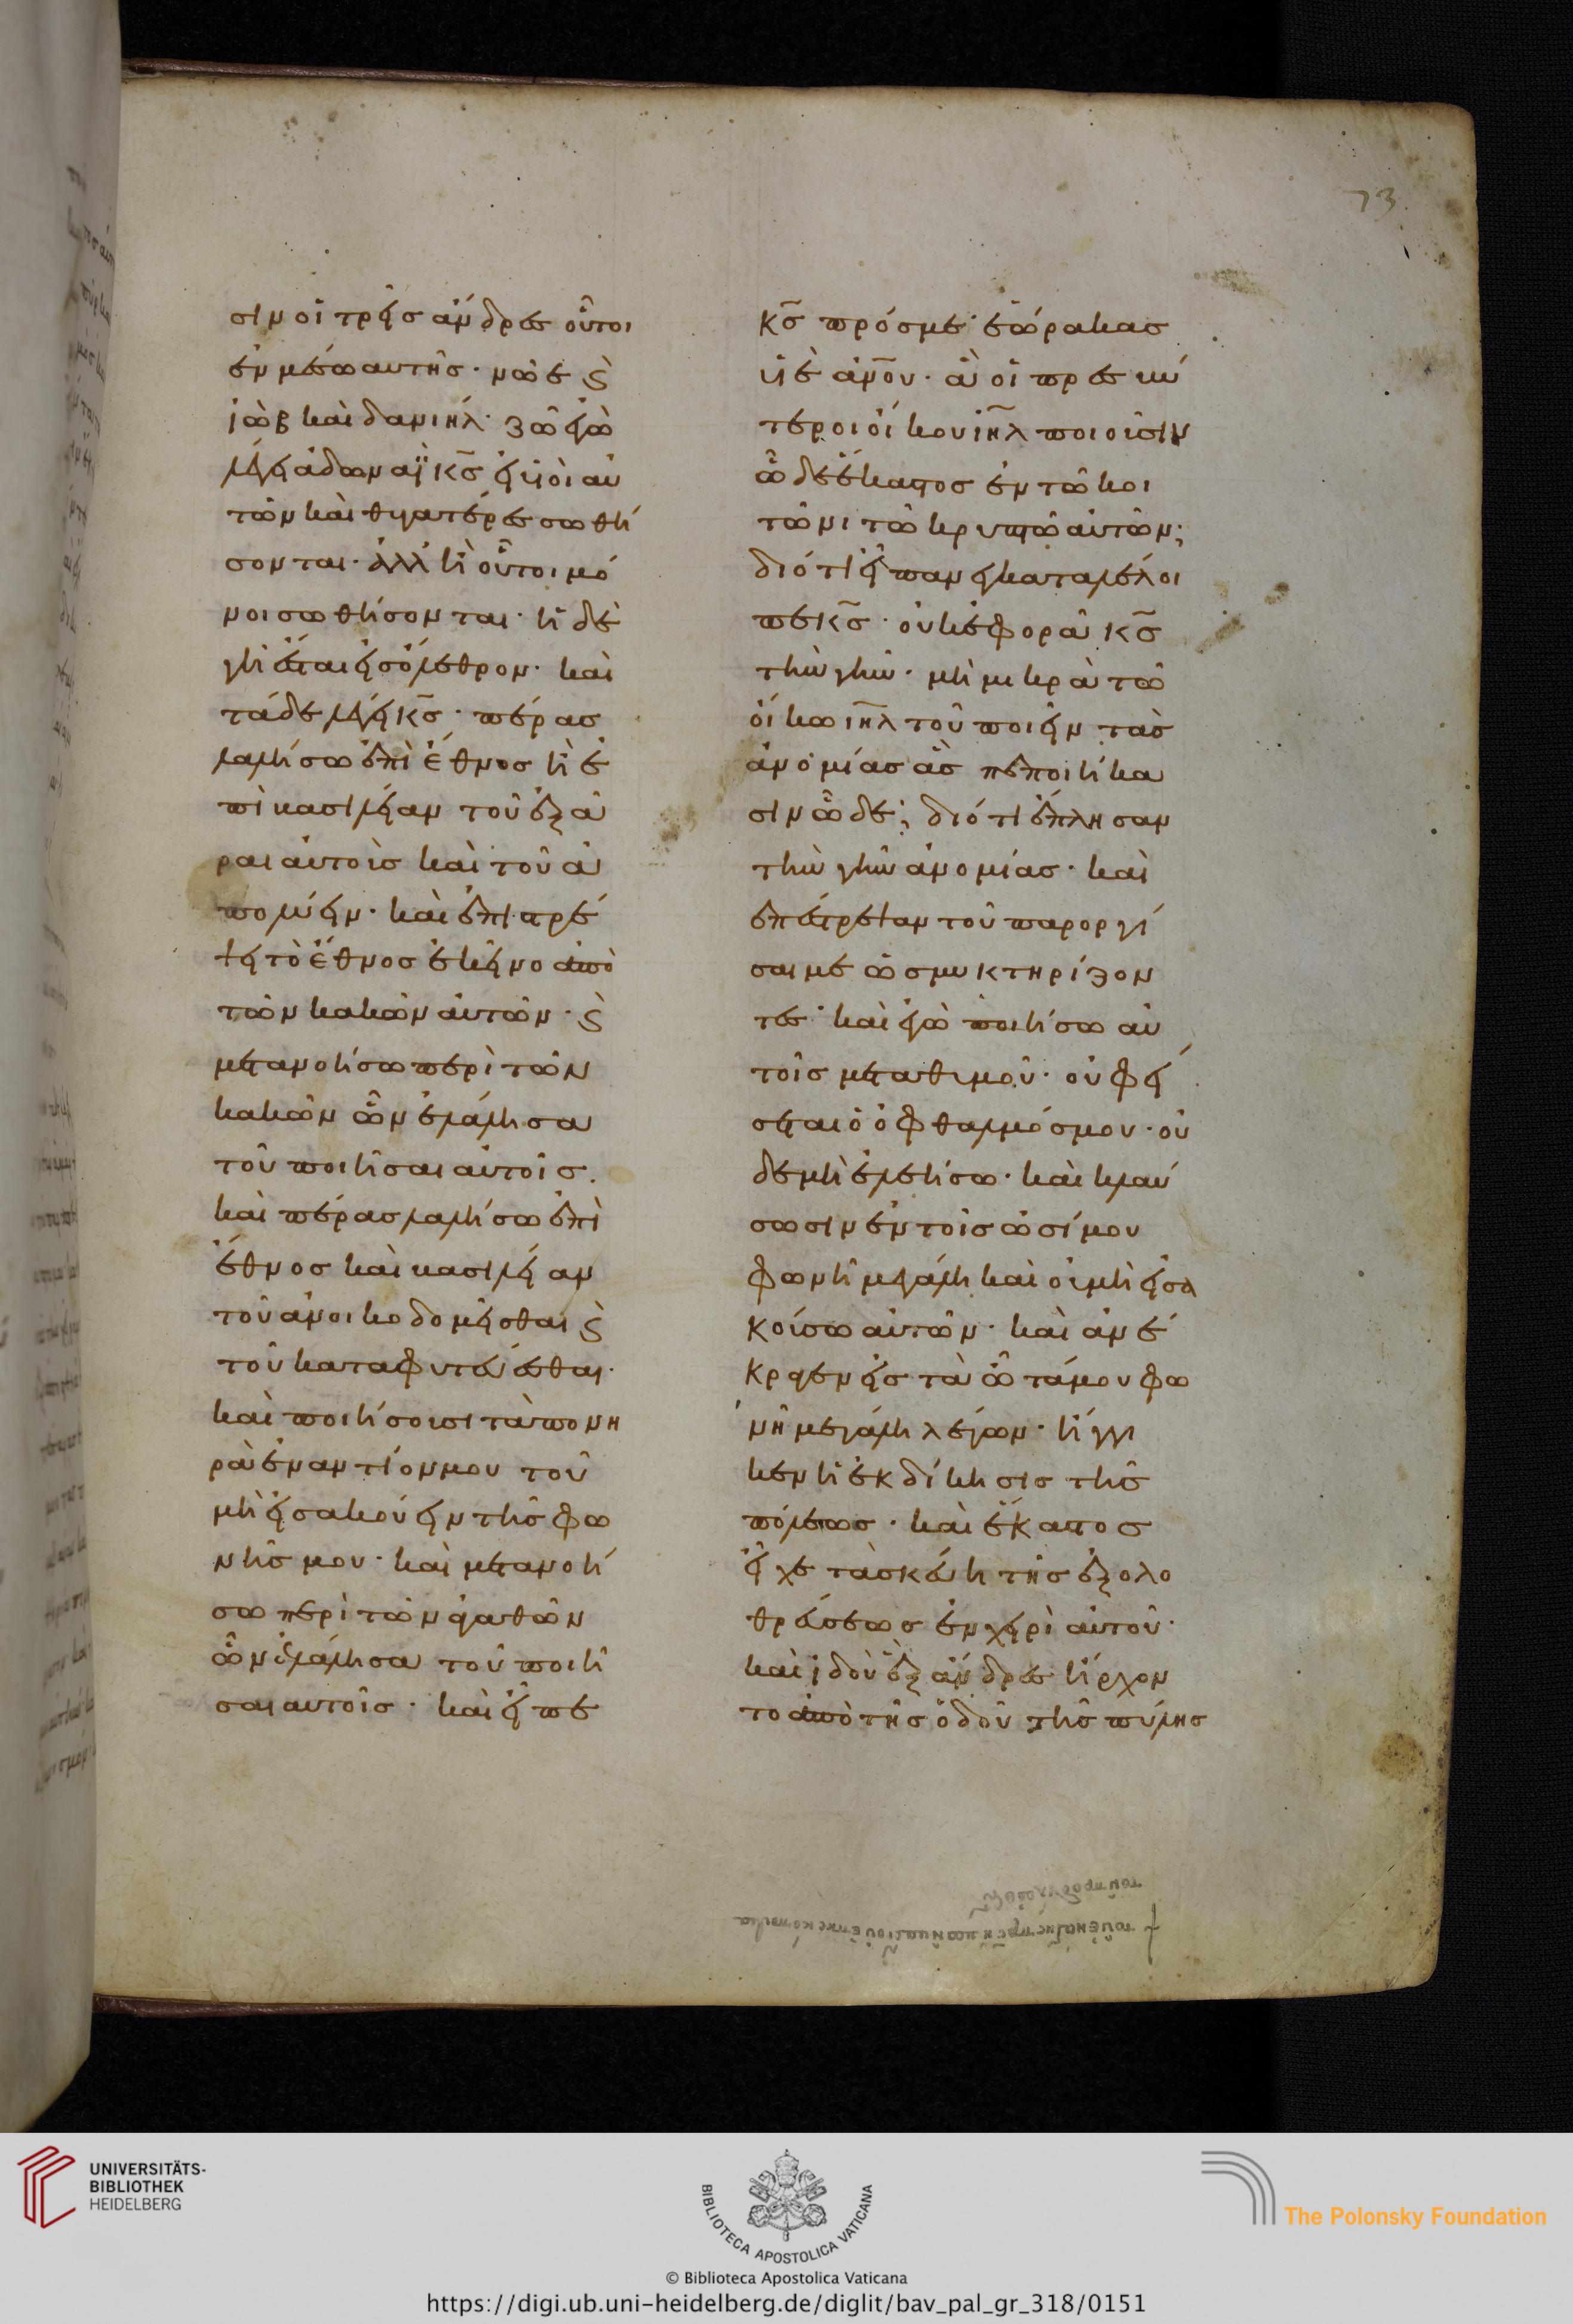 73
σιν οἱ τρεῖς ἄνδρες οὗτοι
ἐν μέσω αυτῆσ· νῶε ϛ
ἰὼβ καὶ δανιήλ· ζῶ ἐγὼ
λέγει ἀδωναϊ κ̅ς̅ εἰ υἱοὶ αὐ
τῶν καὶ θυγατέρες σωθή
σονται· ἀλλ ἢ οὗτοι μό
νοι σωθήσονται· ἡ δὲ
γῆ ἔσται εἰς ὄλεθρον· καὶ
τάδε λέγει κ̅ς̅· πέρας
λαλήσω ἐπὶ ἔθνος ἢ ἐ
πὶ βασιλείαν τοῦ ἐξᾶ
ραι αὐτοὺς καὶ τοῦ ἀ
πολύειν· καὶ ἐπιστρέ
ψει τὸ ἔθνος ἐκεῖνο ἀπὸ
τῶν κακῶν αὐτῶν· ϛ
μετανοήσω περὶ τῶν
κακῶν ὧν ἐλάλησα
τοῦ ποιῆσαι αὐτοῖς.
καὶ πέρας λαλήσω ἐπὶ
ἔθνος καὶ βασιλείαν
τοῦ ἀνοικοδομεῖσθαι ϛ
τοῦ καταφυτεύεσθαι·
καὶ ποιήσουσι τὰ πονη
ρὰ ἐναντίον μου τοῦ
μὴ εἰσακούειν τῆς φω
νῆς μου· καὶ μετανοή
σω περὶ τῶν ἀγαθῶν
ὧν ἐλάλησα τοῦ ποιῆ
σαι αυτοῖς· καὶ εἶπε
κ̅ς̅ πρός με· ἑώρακας
υἱὲ ἀν̅ου· ἃ οἱ πρεσβύ
τεροι οἴκου ι̅η̅λ ποιοῦσιν
ὧδε ἕκαστος ἐν τῶ κοι
τῶνι τῶ κρυπτῶ αὐτῶν;
διότι εἶπαν ἐγκαταλέλοι
πε κ̅ς̅· οὐκ ἐφορᾶ κ̅ς̅
τὴν γῆν· μὴ μικρὰ τῶ
οἴκω ι̅η̅λ τοῦ ποιεῖν τὰς
ἀνομίας ἃς πεποιήκα
σιν ὧδε; διότι ἔπλησαν
τὴν γῆν ἀνομίας· καὶ
ἐπέστρεψαν τοῦ παροργί
σαι με ὡς μυκτηρίζον
τες· καὶ ἐγὼ ποιήσω αὐ
τοῖς μετὰ θυμοῦ· οὐ φεί
σεται ὁ ὀφθαλμός μου· οὐ
δε μὴ ἐλεήσω· καὶ κλαύ
σωσιν ἐν τοῖς ὠσί μου
φωνῆ μεγάλη καὶ οὐ μὴ εἰσα
κούσω αὐτῶν· καὶ ἀνέ
κραγεν εἰς τὰ ὦτά μου φω
νῆ μεγάλη λέγων· ἤγγι
κεν ἡ ἐκδίκησις τῆς
πόλεως· καὶ ἕκαστος
εἶχε τὰ σκεύη τῆς ἐξολο
θρεύσεως ἐν χειρὶ αὐτοῦ·
καὶ ἰδοὺ ἓξ ἄνδρες ἤρχον
το ἀπὸ τῆς ὁδοῦ τῆς πύλης
UNIVERSITÄTS-
BIBLIOTHEK
HEIDELBERG
BIBLIOTECA APOSTOLICA VATICANA
The Polonsky Foundation
© Biblioteca Apostolica Vaticana
https://digi.ub.uni-heidelberg.de/diglit/bav_pal_gr_318/0151